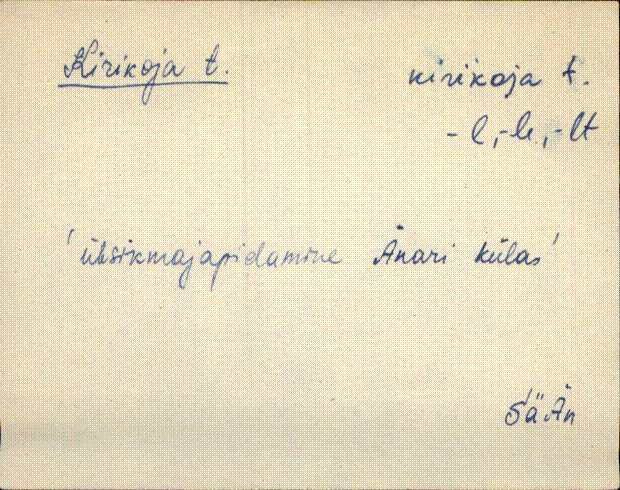 Kirikoja t.
kirikoja t.
-l, -le, -lt
'üksikmajapidamine Änari külas'
Sä Än